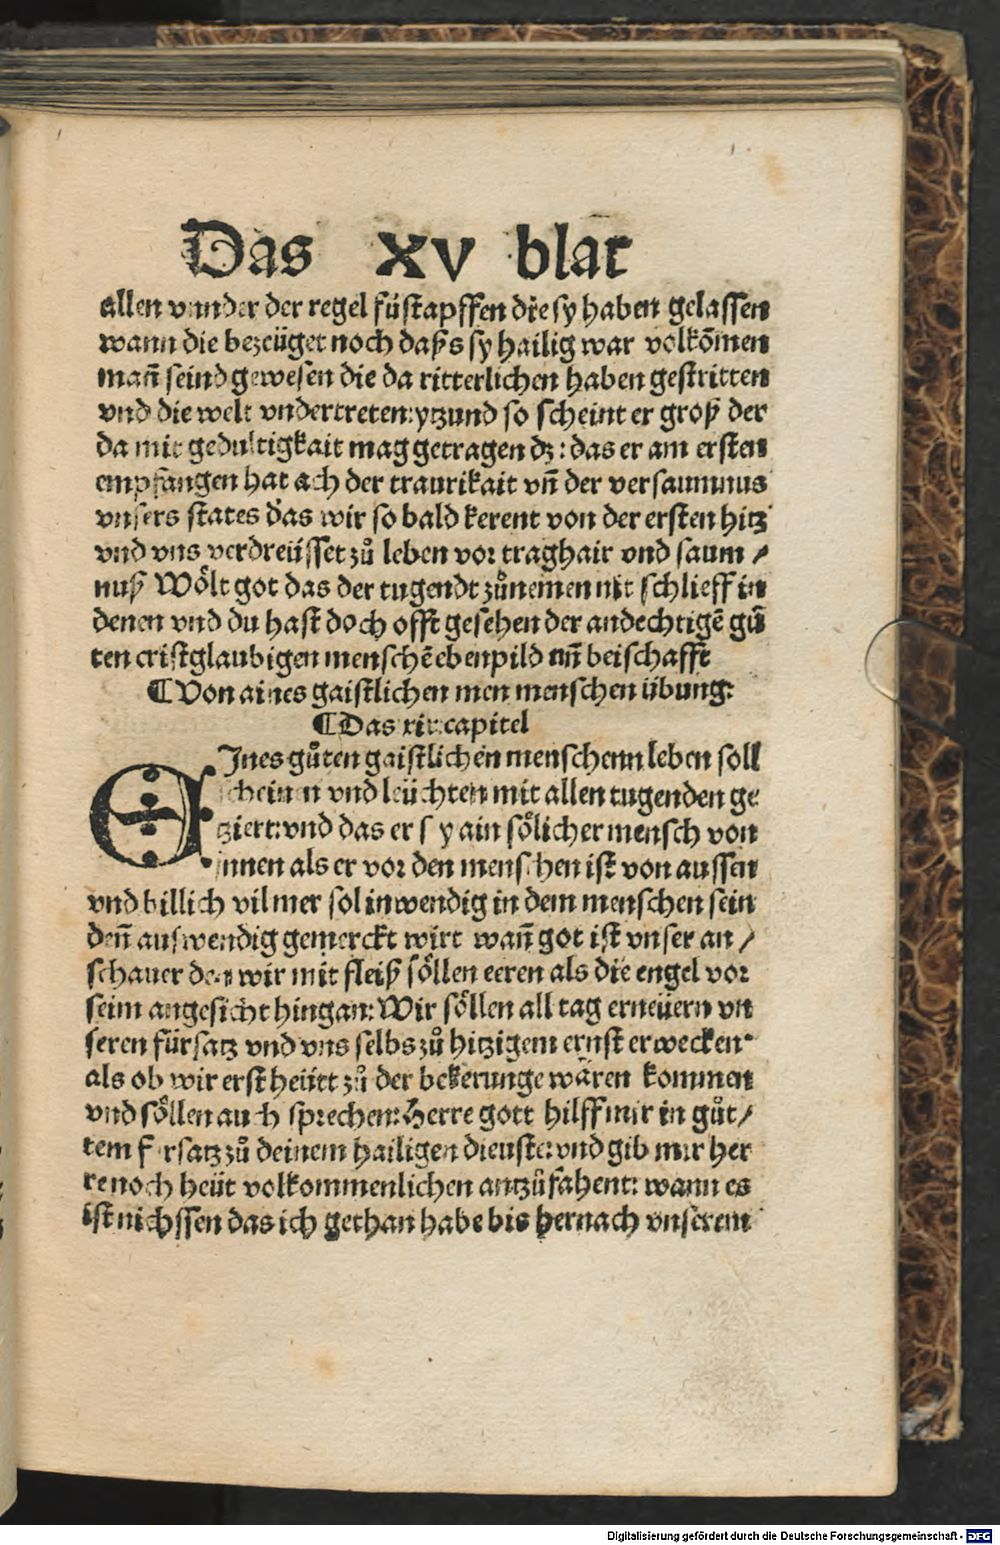 Das XV blat
allen vnnder der regel fůstapffen die sy haben gelassen
wann die bezeüget noch daß s sy hailig war volkōmen
mañ seind gewesen die da ritterlichen haben gestritten
vnd die welt vndertreten: ytzund so scheint er groß der
da mit gedultigkait mag getragen dz: das er am ersten
empfangen hat ach der traurikait vn̄ der versaumnus
vnsers states das wir so bald kerent von der ersten hitz
vnd vns verdreüsset zů leben vor traghait vnd saum /
nuß Wölt got das der tugendt zůnemen nit schlieff in
denen vnd du hast doch offt gesehen der andechtigē gů
ten cristglaubigen menschē ebenpild vn̄ beischafft
¶ Von aines gaistlichen men menschen übung:
¶ Das xix capitel
EInes gůten gaistlichen menschenn leben soll
scheinen vnd leüchten mit allen tugenden ge
ziert: vnd das er s y ain sölicher mensch von
innen als er vor den menschen ist von aussen
vnd billich vil mer sol inwendig in dem menschen sein
den̄ auswendig gemerckt wirt wan̄ got ist vnser an /
schauer den wir mit fleiß söllen eeren als die engel vor
seim angesicht hingan: Wir söllen all tag erneüern vn
seren fürsatz vnd vns selbs zů hitzigem ernst erwecken
als ob wir erst heütt zů der bekerunge wären kommen
vnd söllen auch sprechen: Herre gott hilff mir in gůt /
tem fursatz zů deinem hailigen dienste: vnd gib mir her
re noch heüt volkommenlichen antzůfahent: wann es
ist nichssen das ich gethan habe bis hernach vnserem
Digitalisierung gefördert durch die Deutsche Forschungsgemeinschaft - DFG